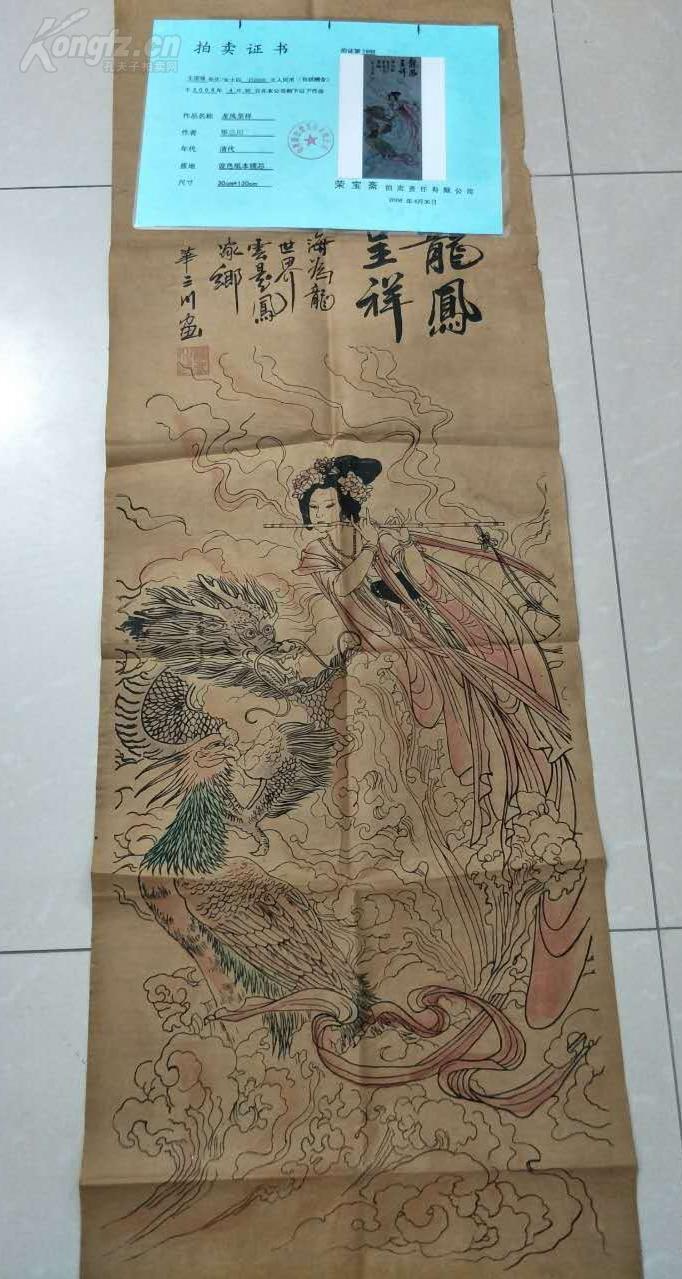 Kongfz.cn
孔夫子拍卖网
拍卖证书
作品名称 龙凤呈祥
作者 华三川
年代 清代
质地
尺寸 30cm*120cm
荣宝斋 拍卖责任有限公司
2008 年4月30日
龍鳳
呈祥
海为龍
世界
雲是鳳
家鄉
華三川畫